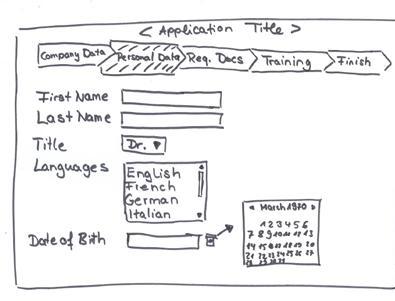 < Application Title >
Company Data Personal Data Req. Docs Training Finish
First Name
Last Name
Title Dr.
Languages
English
French
German
Italian
Date of Bith
March 1970
1 2 3 4 5 6
7 8 9 10 11 12 13
14 15 16 17 18 19 20
21 22 23 24 25 26 27
28 29 30 31